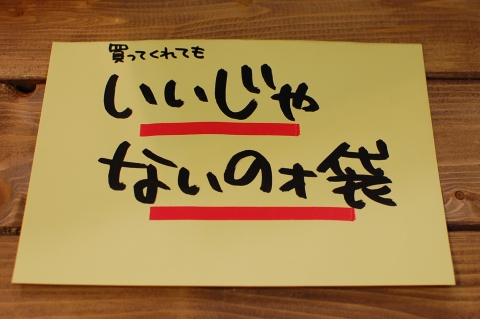 買ってくれても
いいじゃ
ないのォ袋